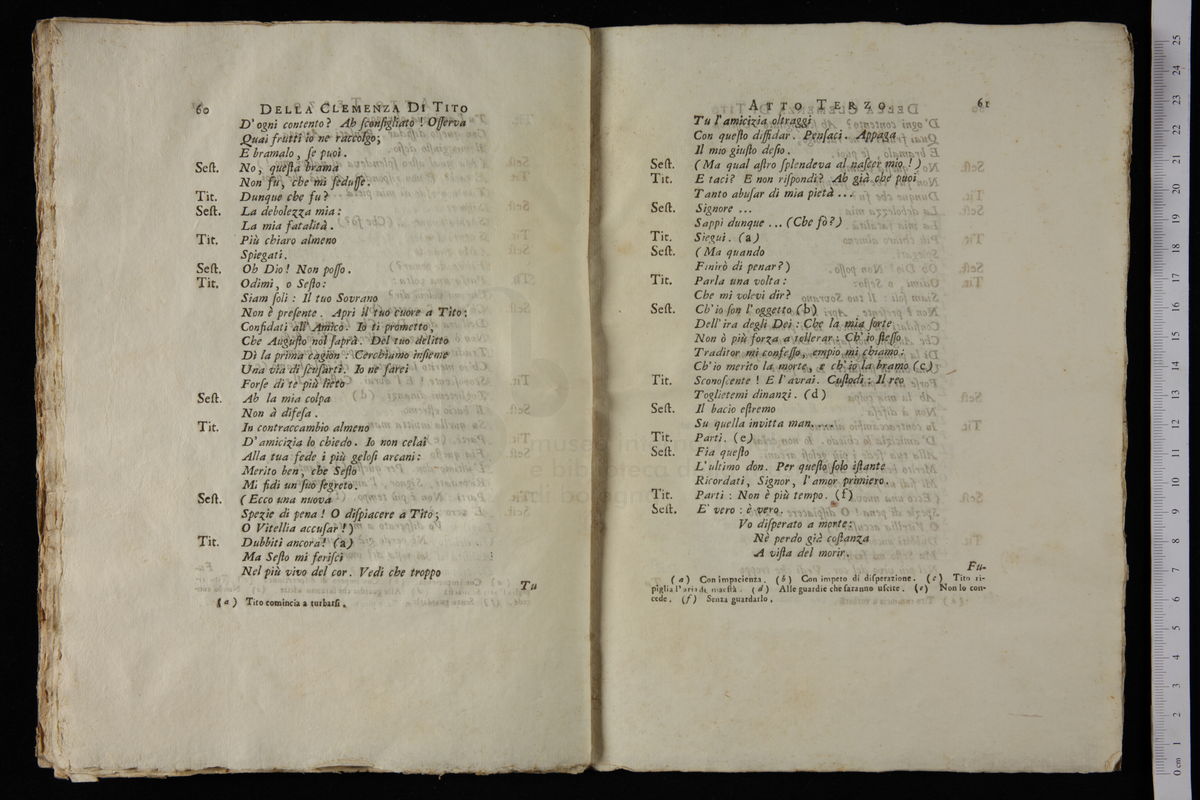 60 DELLA CLEMENZA DI TITO
D' ogni contento? Ah ſconſigliato! Oſſerva
Quai frutti io ne raccolgo;
E bramalo, ſe puoi.
Seſt. No, queſta brama
Non fu, che mi ſeduſſe.
Tit. Dunque che fu?
Seſt. La debolezza mia:
La mia fatalità.
Tit. Più chiaro almeno
Spiegati.
Seſt. Oh Dio! Non poſſo.
Tit. Odimi, o Seſto:
Siam ſoli: Il tuo Sovrano
Non è preſente. Apri il tuo cuore a Tito;
Confidati all' Amico. Io ti prometto,
Che Auguſto nol ſaprà. Del tuo delitto
Dì la prima cagion: Cerchiamo inſieme
Una via di ſcuſarti. Io ne ſarei
Forſe di te più lieto
Seſt. Ah la mia colpa
Non à difeſa.
Tit. In contraccambio almeno
D' amicizia lo chiedo. Io non celai
Alla tua fede i più geloſi arcani:
Merito ben, che Seſto
Mi fidi un ſuo ſegreto.
Seſt. (Ecco una nuova
Spezie di pena! O diſpiacere a Tito;
O Vitellia accuſar!)
Tit. Dubbiti ancora! (a)
Ma Seſto mi feriſci
Nel più vivo del cor. Vedi che troppo
Tu
(a) Tito comincia a turbarſi.
ATTO TERZO. 61
Tu l' amicizia oltraggi
Con queſto diffidar. Penſaci. Appaga
Il mio giuſto deſio.
Seſt. (Ma qual aſtro ſplendeva al naſcer mio!)
Tit. E taci? E non riſpondi? Ah già che puoi
Tanto abuſar di mia pietà ...
Seſt. Signore ...
Sappi dunque ... (Che fò?)
Tit. Siegui. (a)
Seſt. (Ma quando
Finirò di penar?)
Tit. Parla una volta:
Che mi volevi dir?
Seſt. Ch' io ſon l' oggetto (b)
Dell' ira degli Dei: Che la mia ſorte
Non ò più forza a tollerar: Ch' io ſteſſo
Traditor mi confeſſo, empio mi chiamo:
Ch' io merito la morte, e ch' io la bramo (c)
Tit. Sconoſcente! E l' avrai. Cuſtodi: Il reo
Toglietemi dinanzi. (d)
Seſt. Il bacio eſtremo
Su quella invitta man.....
Tit. Parti. (e)
Seſt. Fia queſto
L' ultimo don. Per queſto ſolo iſtante
Ricordati, Signor, l' amor primiero.
Tit. Parti: Non è più tempo. (f)
Seſt. E' vero: è vero.
Vo diſperato a morte:
Nè perdo già coſtanza
A viſta del morir.
Fu-
(a) Con impacienza. (b) Con impeto di diſperazione. (c) Tito ri-
piglia l' aria di maeſtà. (d) Alle guardie che ſaranno uſcite. (e) Non lo con-
cede. (f) Senza guardarlo.